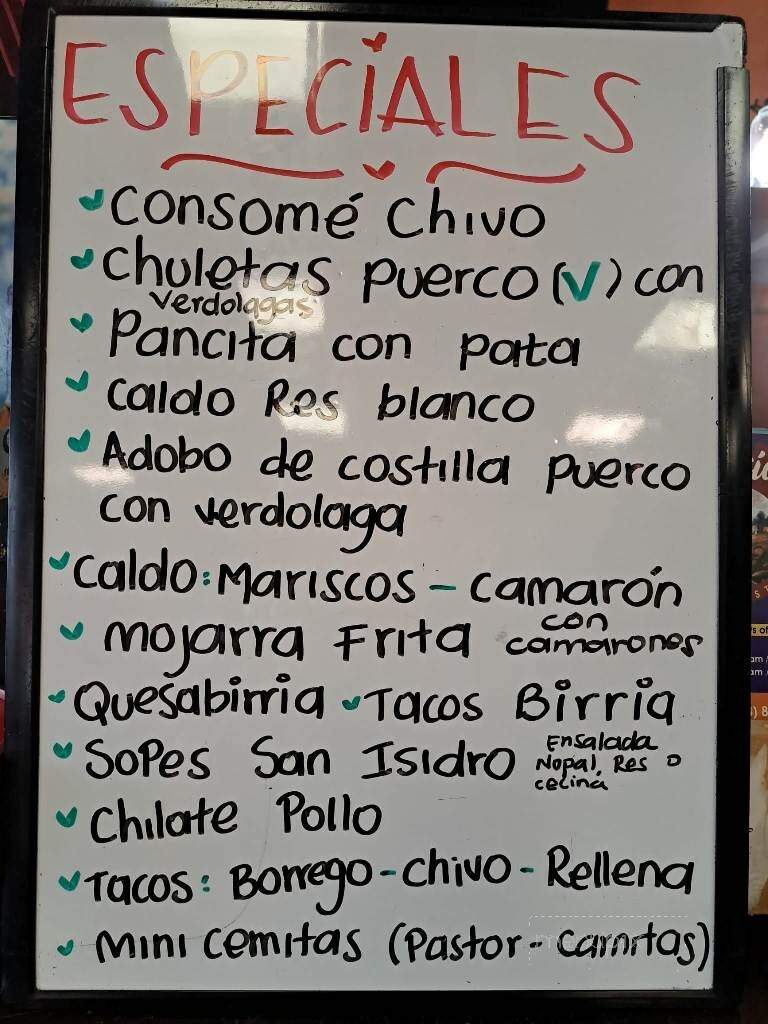 ESPECIALES
Consomé Chivo
Chuletas Puerco (V) con
verdolagas
Pancita con pata
Caldo Res blanco
Adobo de costilla puerco
con verdolaga
Caldo: Mariscos - camarón
Mojarra Frita con
camarones
Quesabirria Tacos Birria
Sopes San Isidro Ensalada
Nopal, Res o
cecina
Chilate Pollo
Tacos: Borrego - chivo - Rellena
Mini cemitas (Pastor - carnitas)